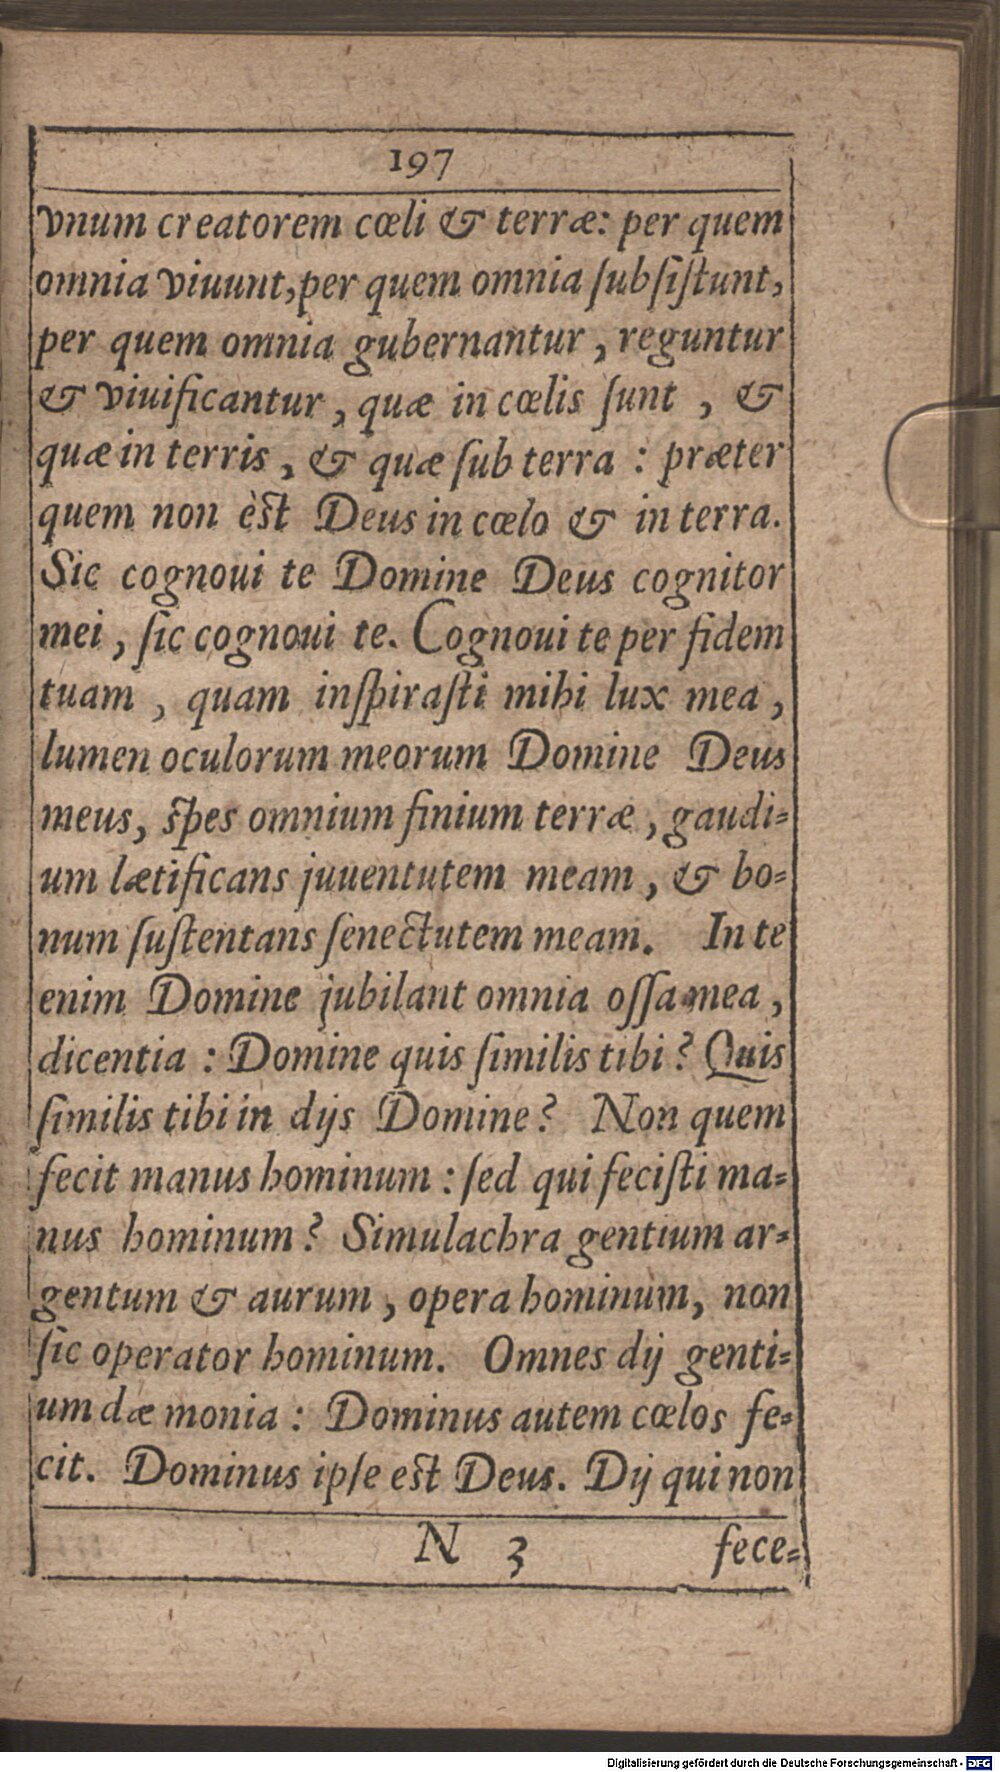 197
vnum creatorem cœli & terræ: per quem
omnia viuunt, per quem omnia ſubſiſtunt,
per quem omnia gubernantur, reguntur
& viuificantur, quæ in cœlis ſunt, &
quæ in terris, & quæ ſub terra : præter
quem non èſt Deus in cœlo & in terra.
Sic cognoui te Domine Deus cognitor
mei, ſic cognoui te. Cognoui te per fidem
tuam, quam inſpiraſti mihi lux mea,
lumen oculorum meorum Domine Deus
meus, ſpes omnium finium terræ, gaudi-
um lætificans juuentutem meam, & bo-
num ſuſtentans ſenectutem meam. In te
enim Domine jubilant omnia oſſa mea,
dicentia : Domine quis ſimilis tibi? Quis
ſimilis tibi in dijs Domine? Non quem
fecit manus hominum : ſed qui feciſti ma-
nus hominum? Simulachra gentium ar-
gentum & aurum, opera hominum, non
ſic operator hominum. Omnes dij genti-
um dæmonia : Dominus autem cœlos fe-
cit. Dominus ipſe eſt Deus. Dij qui non
N 3 fece-
Digitalisierung gefördert durch die Deutsche Forschungsgemeinschaft - DFG